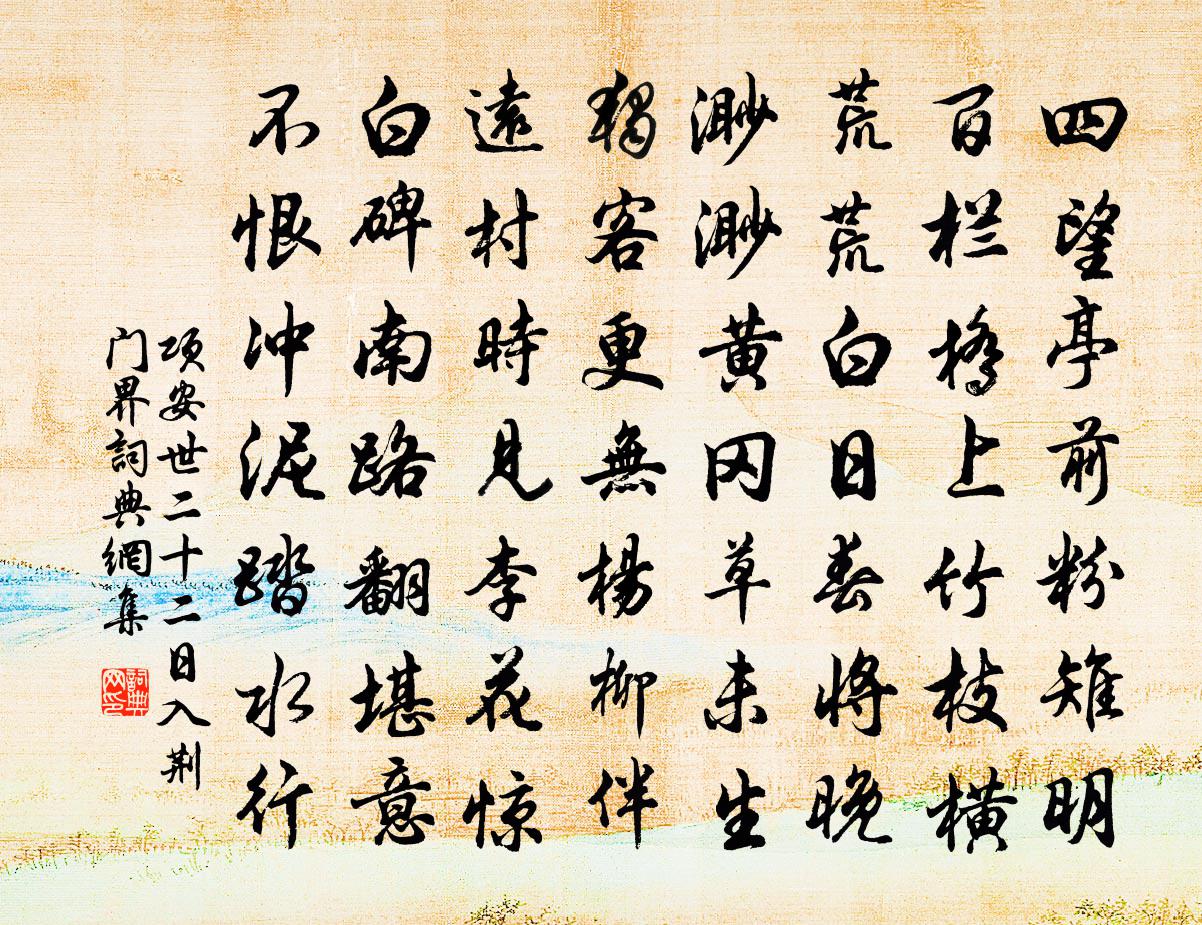 四望亭前粉雉明
百栏桥上竹枝横
荒荒白日春将晚
渺渺黄冈草未生
独客更無楊柳伴
遠村時見李花惊
白碑南路翻堪意
不恨冲泥踏水行
项安世二十二日入荆
门界詞典網集
詞典网印